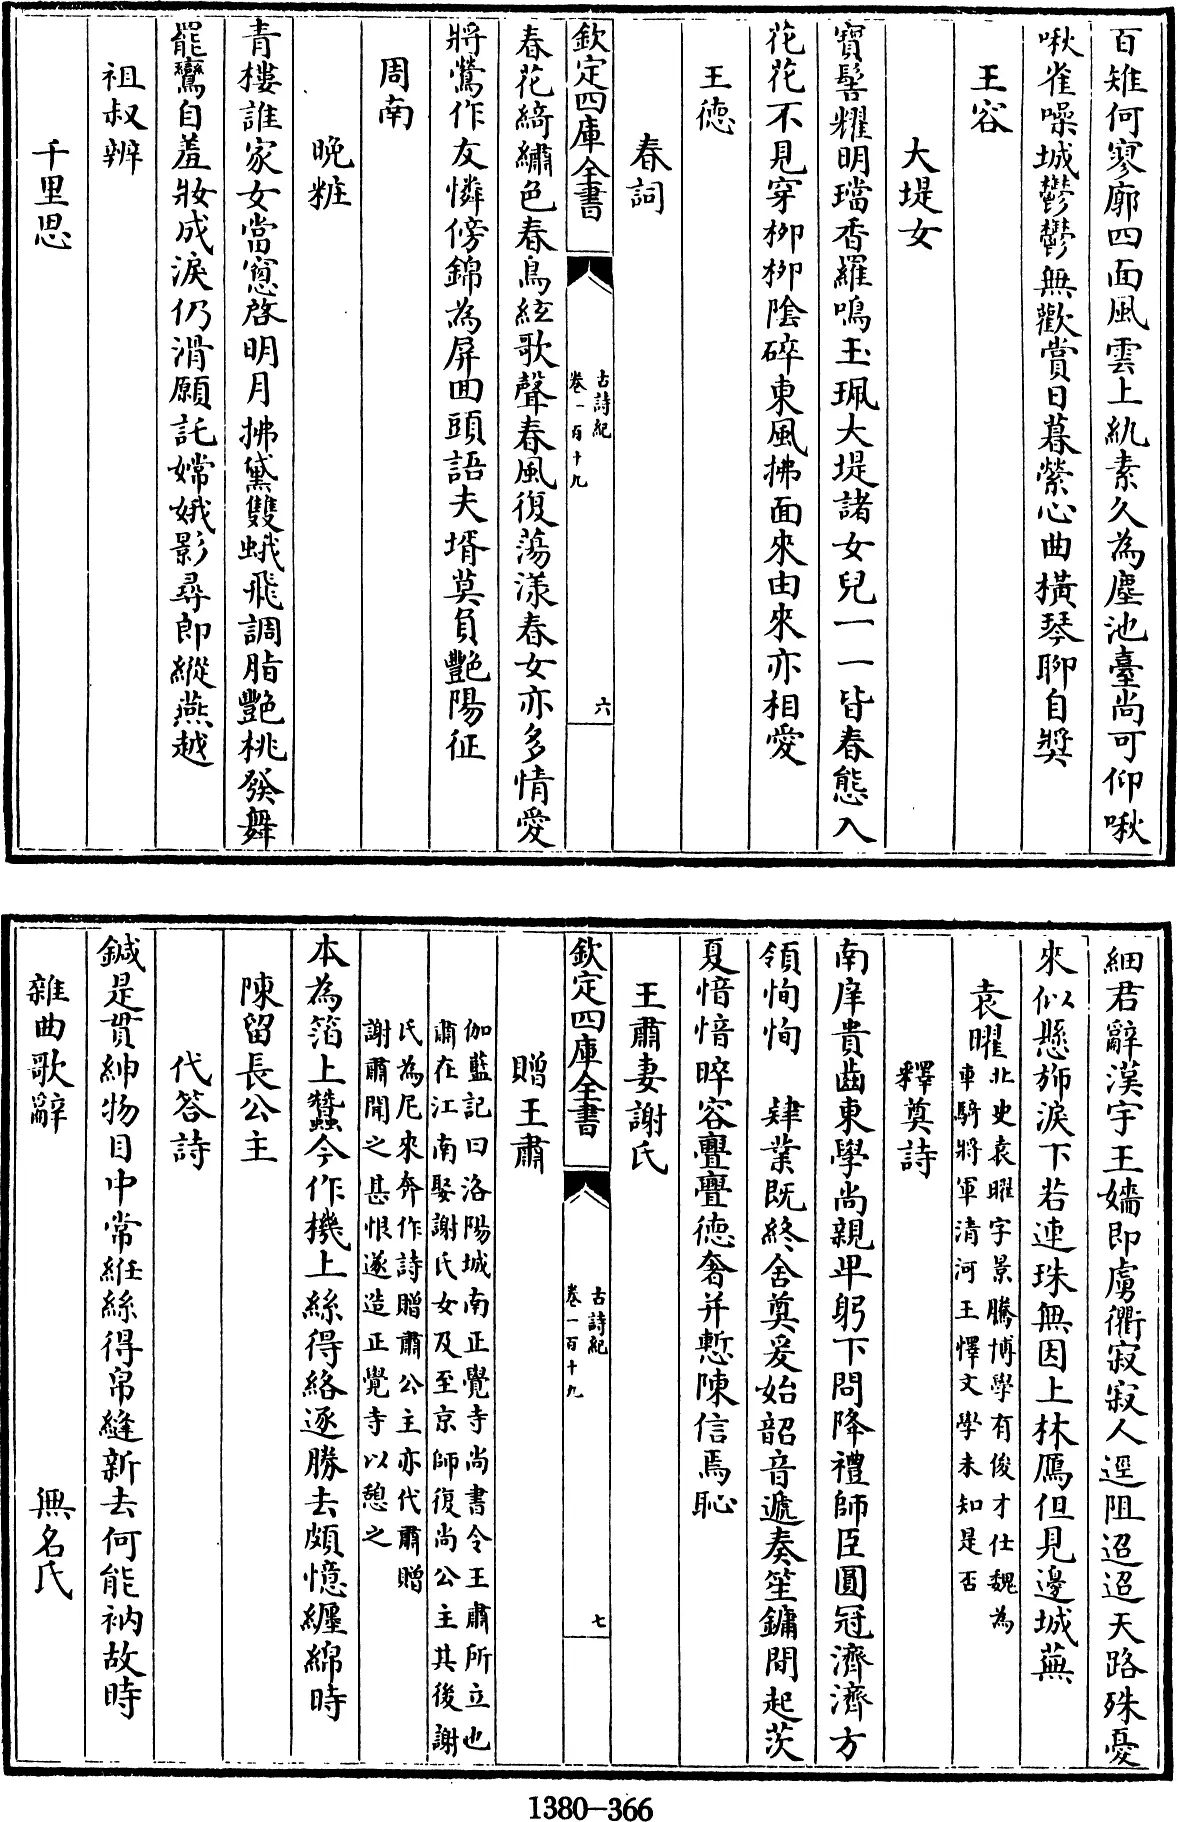 百雉何寥廓四面風雲上紈素久為塵池臺尚可仰啾
啾雀噪城鬱鬱無歡賞日暮縈心曲橫琴聊自奬
王容
大堤女
寶髻耀明璫香羅鳴玉珮大堤諸女兒一一皆春態入
花花不見穿栁栁陰碎東風拂面來由來亦相愛
王德
春詞
欽定四庫全書
古詩紀
卷一百十九
六
春花綺繡色春鳥絃歌聲春風復蕩漾春女亦多情愛
將鶯作友憐傍錦為屏囬頭語夫壻莫負艷陽征
周南
晚粧
青樓誰家女當窻啓明月拂黛雙蛾飛調脂艷桃發舞
罷鸞自羞妝成淚仍滑願託嫦娥影尋郎縱燕越
祖叔辨
千里思
細君辭漢宇王嬙即虜衢寂寂人逕阻迢迢天路殊憂
來似懸旆淚下若連珠無因上林鴈但見邊城蕪
袁曜
北史袁曜字景騰博學有俊才仕魏為
車騎將軍清河王懌文學未知是否
釋奠詩
南庠貴齒東學尚親卑躬下問降禮師臣圓冠濟濟方
領恂恂　肄業既終舍奠爰始韶音遞奏笙鏞間起茨
夏愔愔睟容亹亹德奢并慙陳信焉恥
王肅妻謝氏
欽定四庫全書
古詩紀
卷一百十九
七
贈王肅
伽藍記曰洛陽城南正覺寺尚書令王肅所立也
肅在江南娶謝氏女及至京師復尚公主其後謝
氏為尼來奔作詩贈肅公主亦代肅贈
謝肅聞之甚恨遂造正覺寺以憩之
本為箔上蠶今作機上絲得絡逐勝去頗憶纏綿時
陳留長公主
代答詩
鍼是貫紳物目中常紝絲得帛縫新去何能衲故時
雜曲歌辭　無名氏
1380-366